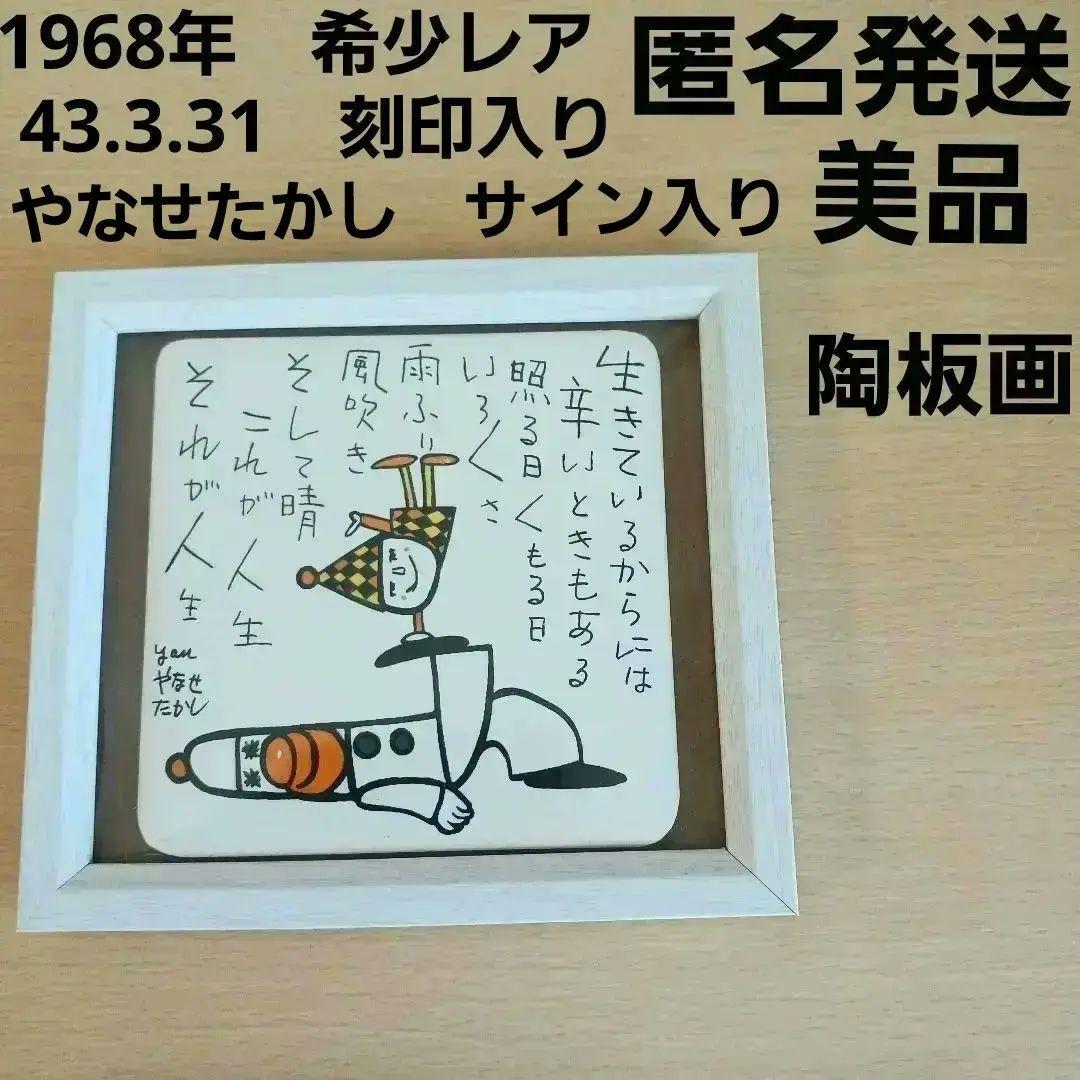 1968年 希少レア
43.3.31 刻印入り
やなせたかし サイン入り
匿名発送
美品
陶板画
生きているからには
辛いときもある
照る日くもる日
いろ〱さ
雨ふり
風吹き
そして晴
これが人生
それが人生
yan
やなせ
たかし